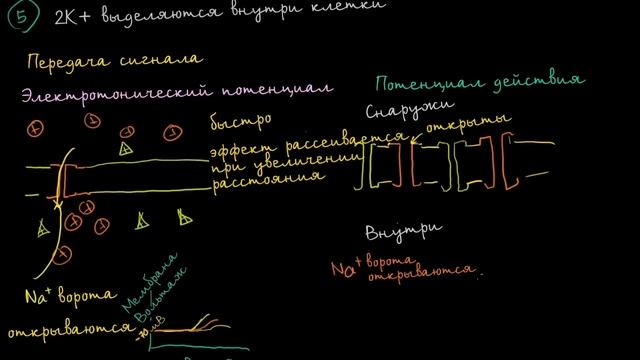 5 2K+ выделяются внутри клетки
Передача сигнала
Электротонический потенциал
быстро
эффект рассеивается
при увеличении
расстояния
Na+ ворота
открываются
Мембрана
Вольтаж
-70 мВ
Потенциал действия
Снаружи
открыты
Внутри
Na+ ворота
открываются